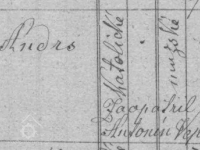 Andrs
katolické
mužské
Zaopatřil
Antonín